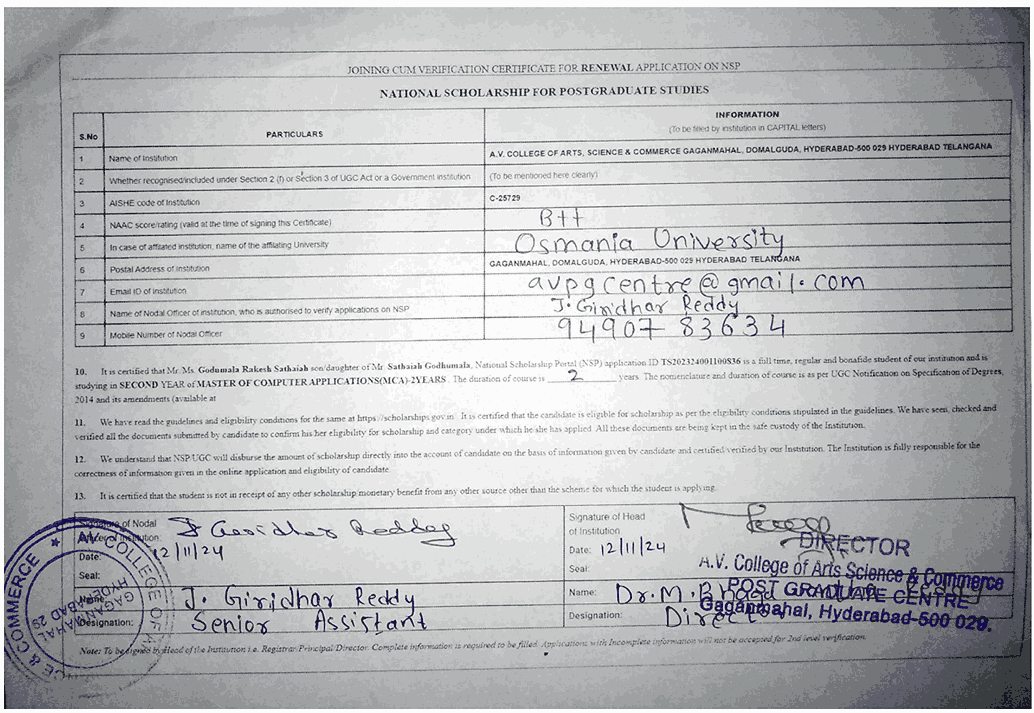 JOINING CUM VERIFICATION CERTIFICATE FOR RENEWAL APPLICATION ON NSP
NATIONAL SCHOLARSHIP FOR POSTGRADUATE STUDIES
S.No PARTICULARS INFORMATION
(To be filled by institution in CAPITAL letters)
1 Name of Institution A.V. COLLEGE OF ARTS, SCIENCE & COMMERCE GAGANMAHAL, DOMALGUDA, HYDERABAD-500 029 HYDERABAD TELANGANA
2 Whether recognised/included under Section 2 (f) or Section 3 of UGC Act or a Government institution (To be mentioned here clearly)
3 AISHE code of Institution C-25729
4 NAAC score/rating (valid at the time of signing this Certificate) B++
5 In case of affliated institution, name of the affliating University Osmania University
6 Postal Address of Institution GAGANMAHAL, DOMALGUDA, HYDERABAD-500 029 HYDERABAD TELANGANA
7 Email ID of Institution avpgcentre@gmail.com
8 Name of Nodal Officer of institution, who is authorised to verify applications on NSP J. Giridhar Reddy
9 Mobile Number of Nodal Officer 94907 83634
10. It is certified that Mr. Ms. Godumala Rakesh Sathaiah son/daughter of Mr Sathaiah Godhumala, National Scholarship Portal (NSP) application ID TS202324001100836 is a full time, regular and bonafide student of our institution and is
studying in SECOND YEAR of MASTER OF COMPUTER APPLICATIONS(MCA)-2YEARS . The duration of course is 2 years. The nomenclature and duration of course is as per UGC Notification on Specification of Degrees,
2014 and its amendments (available at
11. We have read the guidelines and eligibility conditions for the same at https://scholarships.gov.in. It is certified that the candidate is eligible for scholarship as per the eligibility conditions stipulated in the guidelines. We have seen, checked and
verified all the documents submitted by candidate to confirm his/her eligibility for scholarship and category under which he/she has applied. All these documents are being kept in the safe custody of the Institution.
12. We understand that NSP/UGC will disburse the amount of scholarship directly into the account of candidate on the basis of information given by candidate and certified/verified by our Institution. The Institution is fully responsible for the
correctness of information given in the online application and eligibility of candidate.
13. It is certified that the student is not in receipt of any other scholarship/monetary benefit from any other source other than the scheme for which the student is applying.
Signature of Nodal
Officer of Institution: J Giridhar Reddy
Date: 12/11/24
Seal:
Name: J. Giridhar Reddy
Designation: Senior Assistant
Signature of Head
of Institution:
Date: 12/11/24
Seal:
DIRECTOR
A.V. College of Arts Science & Commerce
POST GRADUATE CENTRE
Gaganmahal, Hyderabad-500 029.
Name: Dr. M.
Designation: Director
A.V. COLLEGE OF
SCIENCE & COMMERCE
GAGANMAHAL
HYDERABAD 29
Note: To be signed by Head of the Institution i.e. Registrar/Principal/Director. Complete information is required to be filled. Applications with Incomplete information will not be accepted for 2nd level verification.